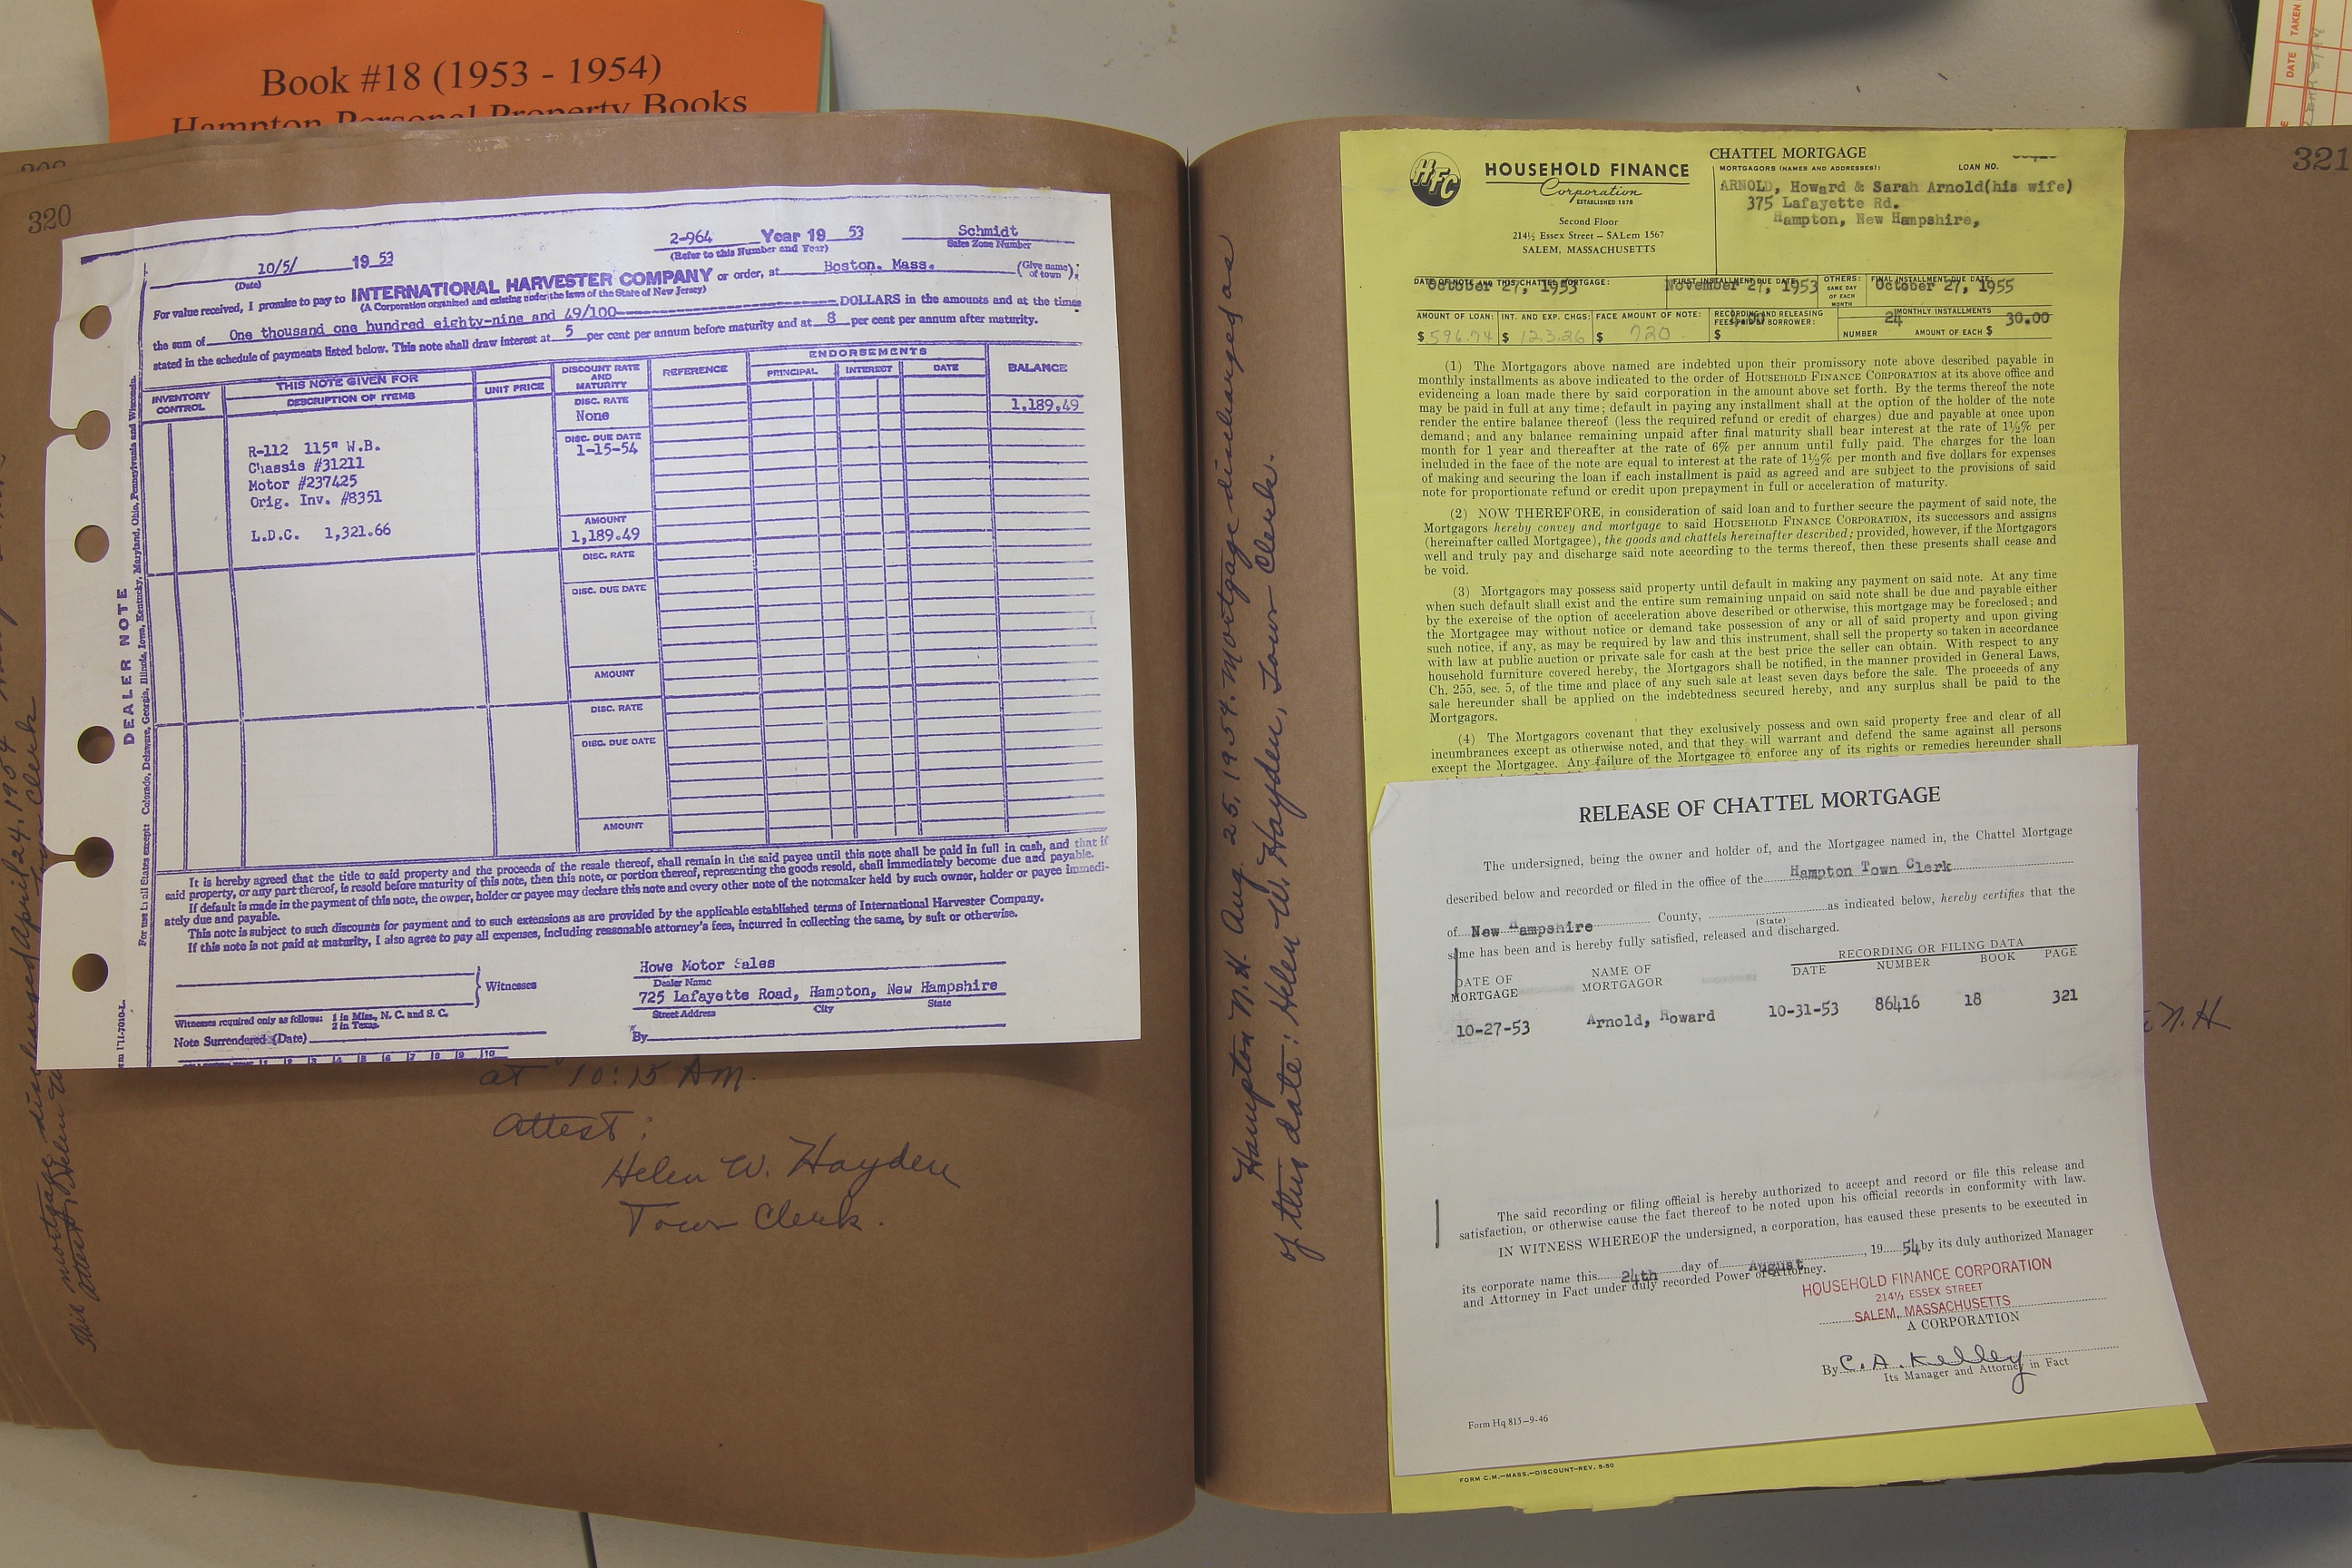 Book #18 (1953 - 1954)
Hampton Personal Property Books
DATE
TAKEN
320
10/5/ 19 53
(Date)
2-964 Year 19 53
(Refer to this Number and Year)
Schmidt
Sales Zone Number
For value received, I promise to pay to INTERNATIONAL HARVESTER COMPANY or order, at Boston. Mass. (Give name of town);
(A Corporation organized and existing under the laws of the State of New Jersey)
the sum of One thousand one hundred eighty-nine and 49/100 DOLLARS in the amounts and at the times
stated in the schedule of payments listed below. This note shall draw interest at 5 per cent per annum before maturity and at 8 per cent per annum after maturity.
INVENTORY CONTROL
THIS NOTE GIVEN FOR
DESCRIPTION OF ITEMS
UNIT PRICE
DISCOUNT RATE AND MATURITY
REFERENCE
ENDORSEMENTS
PRINCIPAL
INTEREST
DATE
BALANCE
DISC. RATE
None
1,189.49
R-112 115" W.B.
Chassis #31211
Motor #237425
Orig. Inv. #8351
L.D.C. 1,321.66
DISC. DUE DATE
1-15-54
AMOUNT
1,189.49
DISC. RATE
DISC. DUE DATE
AMOUNT
DISC. RATE
DISC. DUE DATE
AMOUNT
DEALER NOTE
For use in all States except: Colorado, Delaware, Georgia, Illinois, Iowa, Kentucky, Maryland, Ohio, Pennsylvania and Wisconsin.
It is hereby agreed that the title to said property and the proceeds of the resale thereof, shall remain in the said payee until this note shall be paid in full in cash, and that if
said property, or any part thereof, is resold before maturity of this note, then this note, or portion thereof, representing the goods resold, shall immediately become due and payable.
If default is made in the payment of this note, the owner, holder or payee may declare this note and every other note of the notemaker held by such owner, holder or payee immedi-
ately due and payable.
This note is subject to such discounts for payment and to such extensions as are provided by the applicable established terms of International Harvester Company.
If this note is not paid at maturity, I also agree to pay all expenses, including reasonable attorney's fees, incurred in collecting the same, by suit or otherwise.
Witnesses
Witnesses required only as follows: 1 in Miss., N. C. and S. C.
2 in Texas.
Note Surrendered (Date)
1 2 3 4 5 6 7 8 9 10
Howe Motor Sales
Dealer Name
725 Lafayette Road, Hampton, New Hampshire
Street Address City State
By
at 10:15 AM.
Attest:
Helen W. Hayden
Town Clerk.
This mortgage discharged April 24, 1954
Attest: Helen W.
Clerk
Hampton N.H. Aug. 25, 1954. Mortgage discharged as
of this date: Helen W. Hayden, Town Clerk.
321
HFC
HOUSEHOLD FINANCE
Corporation
ESTABLISHED 1878
Second Floor
214½ Essex Street – SAlem 1567
SALEM, MASSACHUSETTS
CHATTEL MORTGAGE
MORTGAGORS (NAMES AND ADDRESSES):
LOAN NO.
ARNOLD, Howard & Sarah Arnold(his wife)
375 Lafayette Rd.
Hampton, New Hampshire,
DATE OF NOTE AND THIS CHATTEL MORTGAGE:
October 27, 1953
FIRST INSTALLMENT DUE DATE:
November 27, 1953
OTHERS: SAME DAY OF EACH MONTH
FINAL INSTALLMENT DUE DATE:
October 27, 1955
AMOUNT OF LOAN:
$ 596.74
INT. AND EXP. CHGS:
$ 123.26
FACE AMOUNT OF NOTE:
$ 720.
RECORDING AND RELEASING FEES PAID BY BORROWER:
$
MONTHLY INSTALLMENTS
NUMBER 24 AMOUNT OF EACH $ 30.00
(1) The Mortgagors above named are indebted upon their promissory note above described payable in
monthly installments as above indicated to the order of HOUSEHOLD FINANCE CORPORATION at its above office and
evidencing a loan made there by said corporation in the amount above set forth. By the terms thereof the note
may be paid in full at any time; default in paying any installment shall at the option of the holder of the note
render the entire balance thereof (less the required refund or credit of charges) due and payable at once upon
demand; and any balance remaining unpaid after final maturity shall bear interest at the rate of 1½% per
month for 1 year and thereafter at the rate of 6% per annum until fully paid. The charges for the loan
included in the face of the note are equal to interest at the rate of 1½% per month and five dollars for expenses
of making and securing the loan if each installment is paid as agreed and are subject to the provisions of said
note for proportionate refund or credit upon prepayment in full or acceleration of maturity.
(2) NOW THEREFORE, in consideration of said loan and to further secure the payment of said note, the
Mortgagors hereby convey and mortgage to said HOUSEHOLD FINANCE CORPORATION, its successors and assigns
(hereinafter called Mortgagee), the goods and chattels hereinafter described; provided, however, if the Mortgagors
well and truly pay and discharge said note according to the terms thereof, then these presents shall cease and
be void.
(3) Mortgagors may possess said property until default in making any payment on said note. At any time
when such default shall exist and the entire sum remaining unpaid on said note shall be due and payable either
by the exercise of the option of acceleration above described or otherwise, this mortgage may be foreclosed; and
the Mortgagee may without notice or demand take possession of any or all of said property and upon giving
such notice, if any, as may be required by law and this instrument, shall sell the property so taken in accordance
with law at public auction or private sale for cash at the best price the seller can obtain. With respect to any
household furniture covered hereby, the Mortgagors shall be notified, in the manner provided in General Laws,
Ch. 255, sec. 5, of the time and place of any such sale at least seven days before the sale. The proceeds of any
sale hereunder shall be applied on the indebtedness secured hereby, and any surplus shall be paid to the
Mortgagors.
(4) The Mortgagors covenant that they exclusively possess and own said property free and clear of all
incumbrances except as otherwise noted, and that they will warrant and defend the same against all persons
except the Mortgagee. Any failure of the Mortgagee to enforce any of its rights or remedies hereunder shall
RELEASE OF CHATTEL MORTGAGE
The undersigned, being the owner and holder of, and the Mortgagee named in, the Chattel Mortgage
described below and recorded or filed in the office of the Hampton Town Clerk
of New Hampshire County, as indicated below, hereby certifies that the
(State)
same has been and is hereby fully satisfied, released and discharged.
RECORDING OR FILING DATA
DATE OF MORTGAGE
NAME OF MORTGAGOR
DATE NUMBER BOOK PAGE
10-27-53 Arnold, Howard 10-31-53 86416 18 321
The said recording or filing official is hereby authorized to accept and record or file this release and
satisfaction, or otherwise cause the fact thereof to be noted upon his official records in conformity with law.
IN WITNESS WHEREOF the undersigned, a corporation, has caused these presents to be executed in
its corporate name this 24th day of August, 19 54 by its duly authorized Manager
and Attorney in Fact under duly recorded Power of Attorney.
HOUSEHOLD FINANCE CORPORATION
214½ ESSEX STREET
SALEM, MASSACHUSETTS
A CORPORATION
By C. A. Kelley
Its Manager and Attorney in Fact
Form Hq 815–9-46
FORM C.M.–MASS.–DISCOUNT–REV. 5-50
N.H